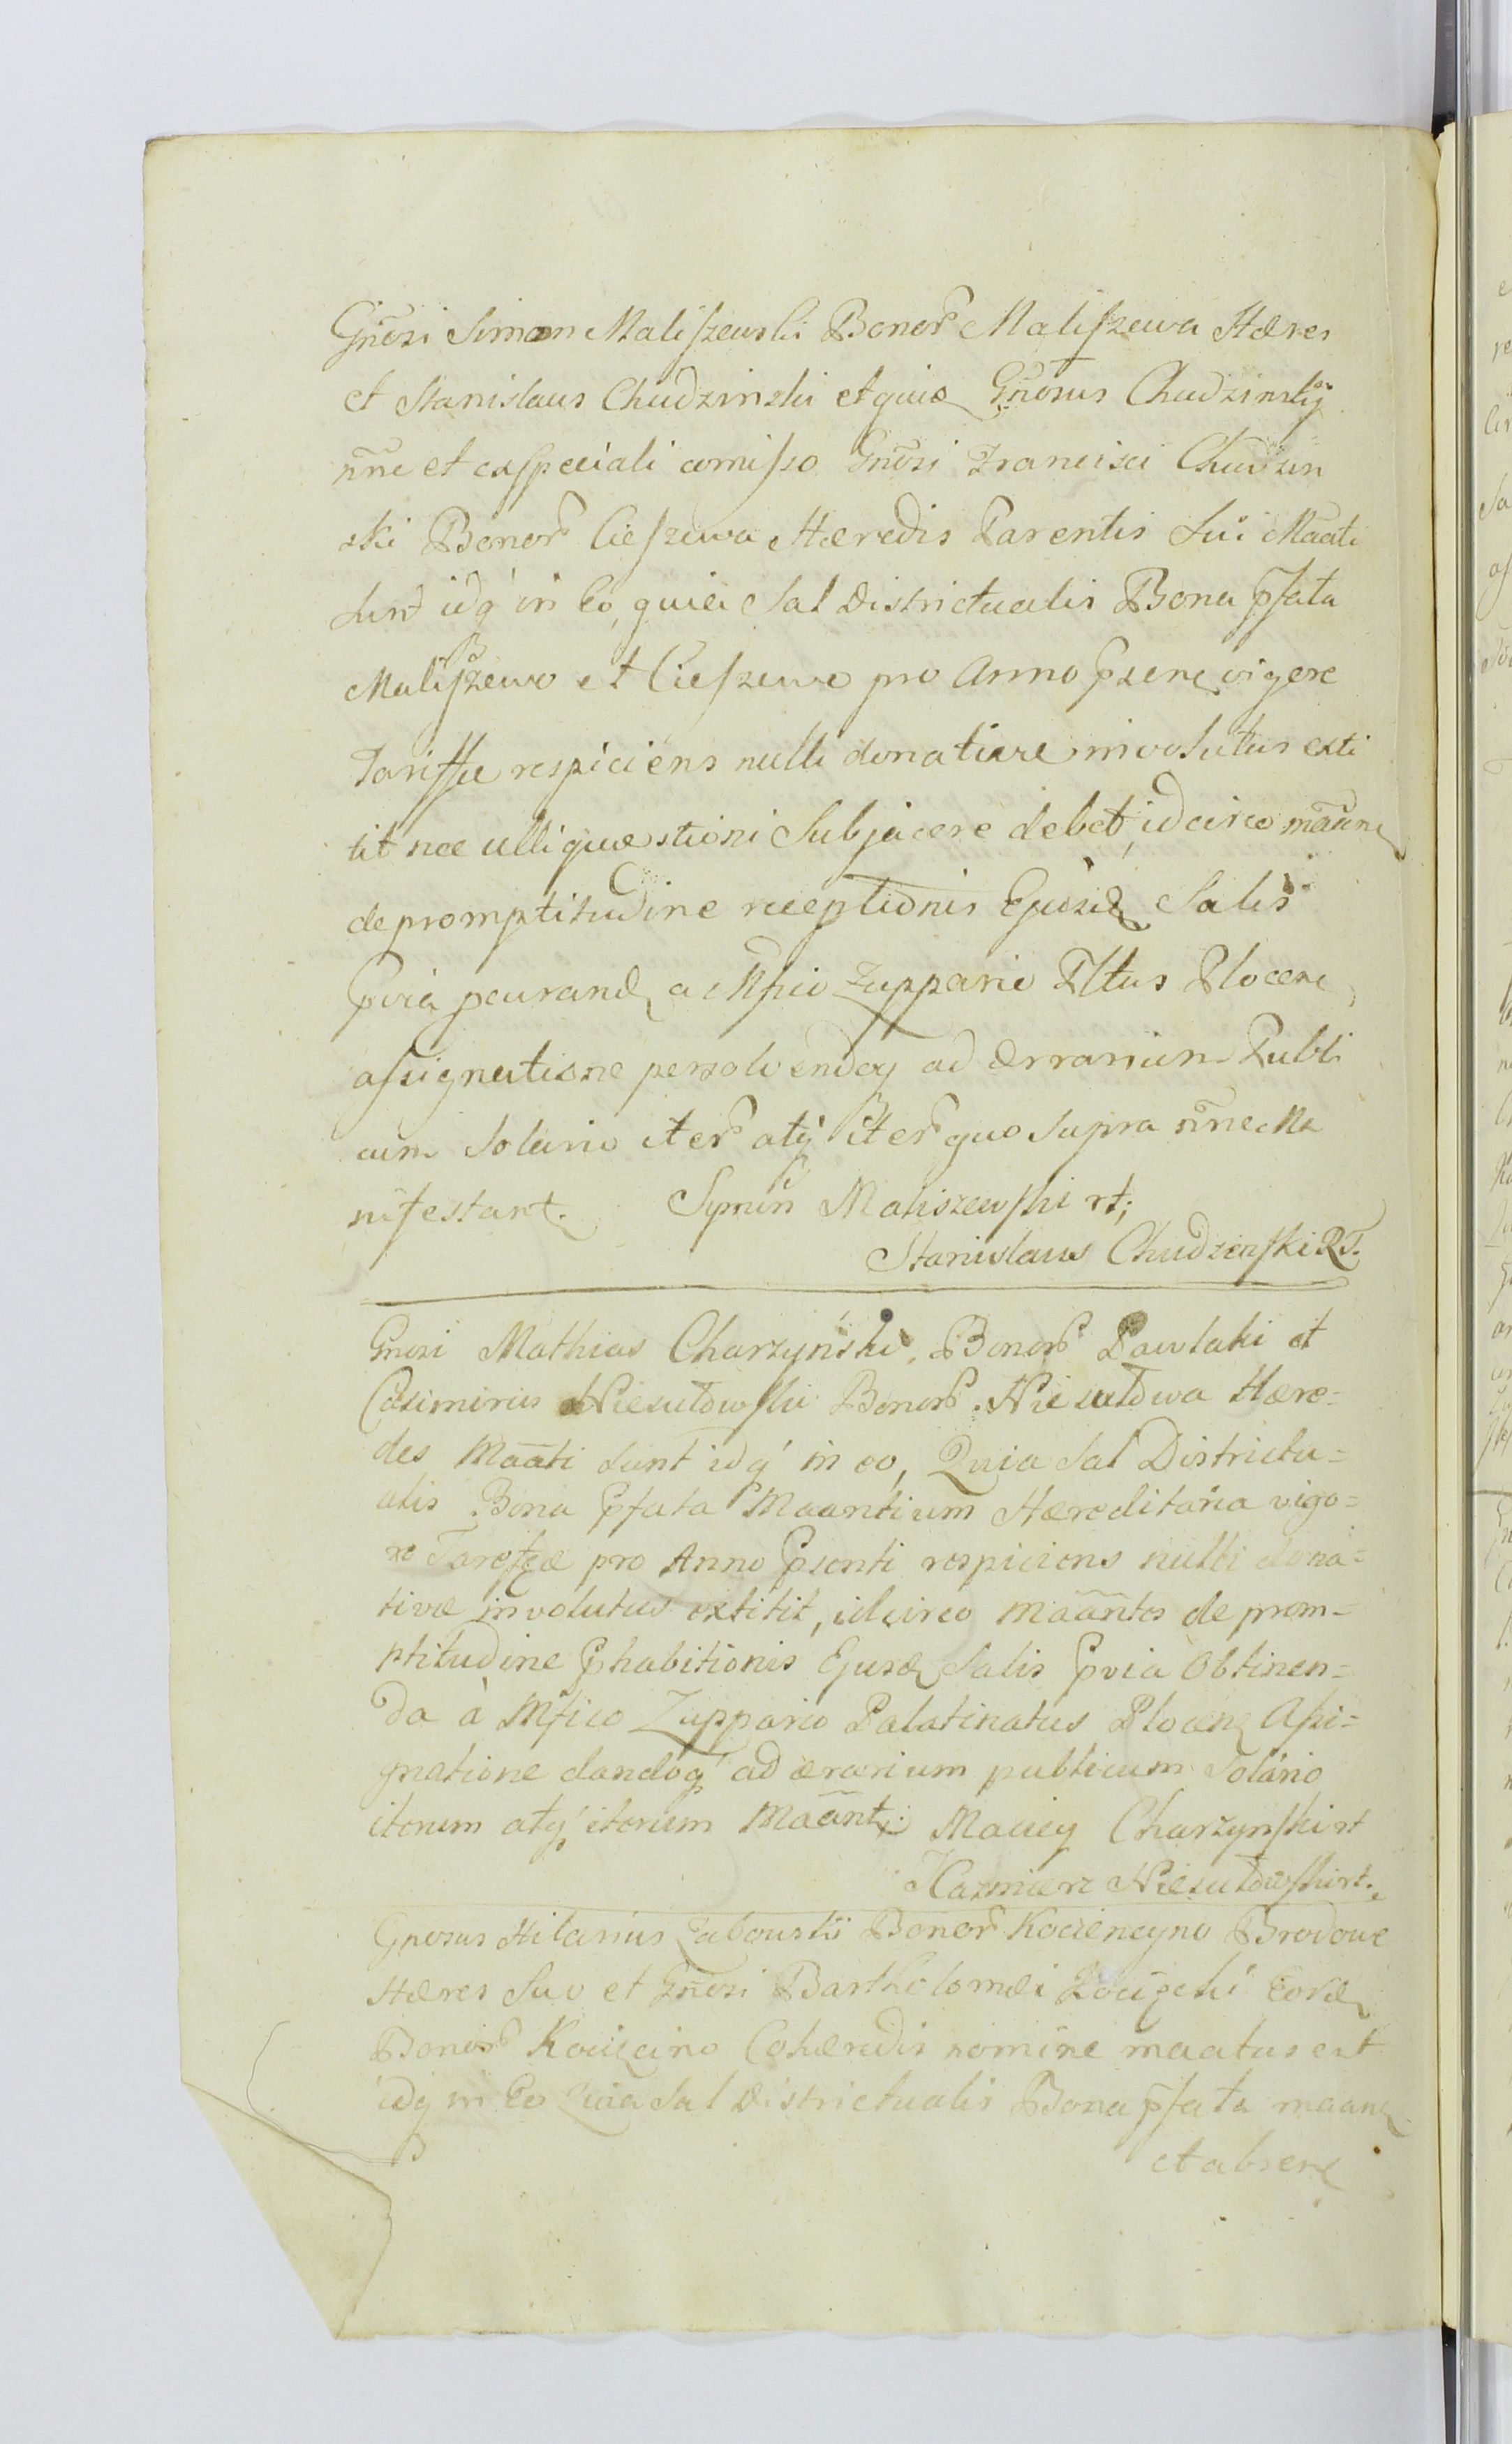 Gnosi Simon Maliszewski Bonor Maliszewa Hæres
et Stanislaus Chudzinski et quia Gnosus Chudzinsky
nne et ex speciali comisso Gnosi Francisci Chudzin
ski Bonor Cieszewa Hæredis Parentis Sui Maati
Sunt idq' in Eo, quia Sal Districtualis Bona pfata
Maliszewo et Cieszewo pro Anno psene vigore
Tariffæ respiciens nulli donativæ involutus exti
tit nec ulli quæstioni Subjacere debet, idcirco maane
de promptitudine receptionis Ejusd Salis
pvia pcurand a Mfico Zuppario Pltus Plocene
assignatione persolvendoq ad Ærrarium Publi
cum Solario iter atq' iter quo supra nne Ma
nifestant. Symun Maliszewski rt;
Stanislaus Chudzinski RT.
Gnosi Mathias Charzyński, Bonor Pawlaki et
Casimirus Niesułowski Bonor Niesułowa Hære=
des Maati Sunt idq' in eo, Quia Sal Districtu=
alis Bona Pfata Maantium Hæreditaria vigo=
re Tareffæ pro Anno Psenti respiciens nulli dona=
tivæ involutus extitit, idcirco Maantes de prom=
ptitudine Phabitionis Ejusd Salis Pvia Obtinen=
da à Mfico Zuppario Palatinatus Plocene Assi=
gnatione dandoq' ad ærarium publicum Solario
iterum atq' iterum Maant. Maciey Charzynski rt
Kazmierz Niesułowski rt.
Gnosus Hilarius Zabouski Bonor Kocięncyno Brodowe
Hæres Suo et Gnosi Bartholomæi eord
Bonor Kocięcino Cohæredis nomine maatus est
idq in Eo Quia Sal Districtualis Bona pfata maane
et absene